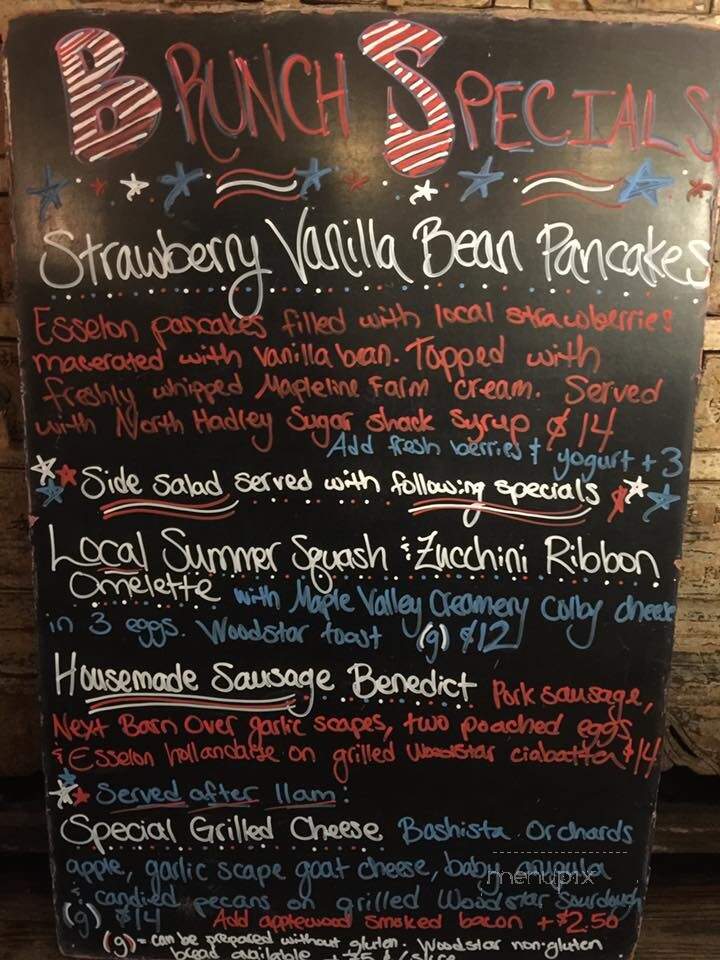 Brunch Specials
Strawberry Vanilla Bean Pancakes
Esselon pancakes filled with local strawberries
macerated with Vanilla bean. Topped with
freshly whipped Mapleline Farm cream. Served
with North Hadley Sugar shack Syrup $14
Add fresh berries & yogurt + 3
Side salad served with following specials
Local Summer Squash & Zucchini Ribbon
Omelette with Maple Valley Creamery Colby cheese
in 3 eggs. Woodstar toast (g) $12
Housemade Sausage Benedict Pork sausage,
Next Barn Over garlic scapes, two poached eggs
& Esselon hollandaise on grilled WoodStar ciabatta $14
Served after 11am:
Special Grilled Cheese Bashista Orchards
apple, garlic scape goat cheese, baby arugula
& candied pecans on grilled Woodstar Sourdough
(g) $14 Add applewood smoked bacon + $2.50
(g) = can be prepared without gluten. Woodstar non-gluten
bread available
menupix